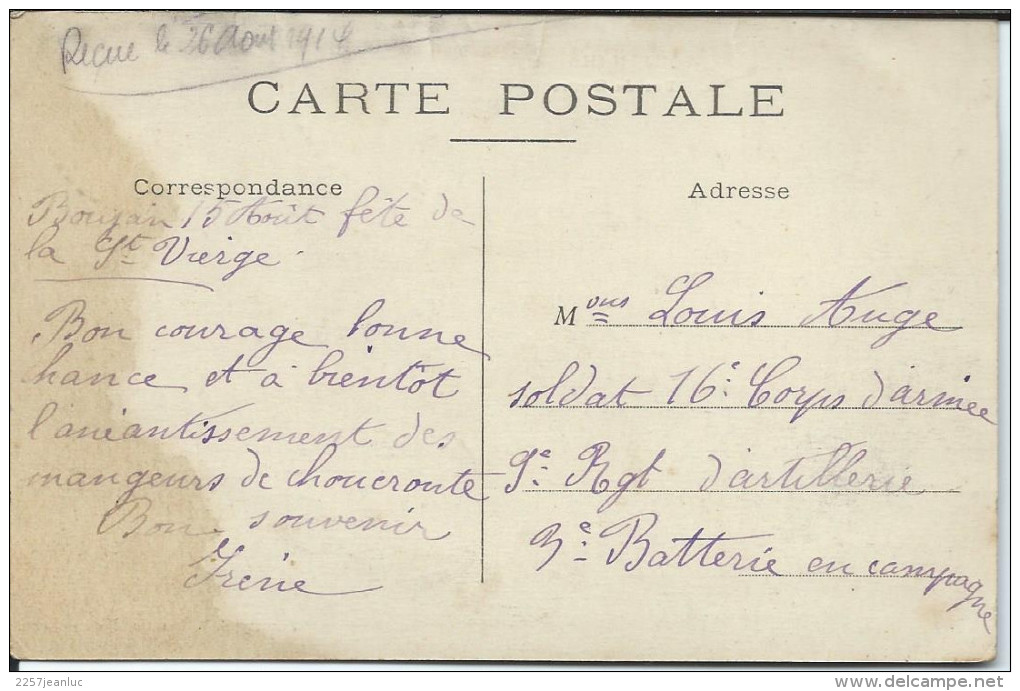 Reçue le 26 Aout 1914
CARTE POSTALE
Correspondance
Adresse
Boujan 15 Août fête de
la St Vierge.
Bon courage bonne
chance et à bientôt
l'anéantissement des
mangeurs de choucroute
Bon souvenir
Irène
Mous Louis Auge
soldat 16e Corps d'armée
9e Rgt d'artillerie
3e Batterie en campagne
2257jeanluc
delcampe.net